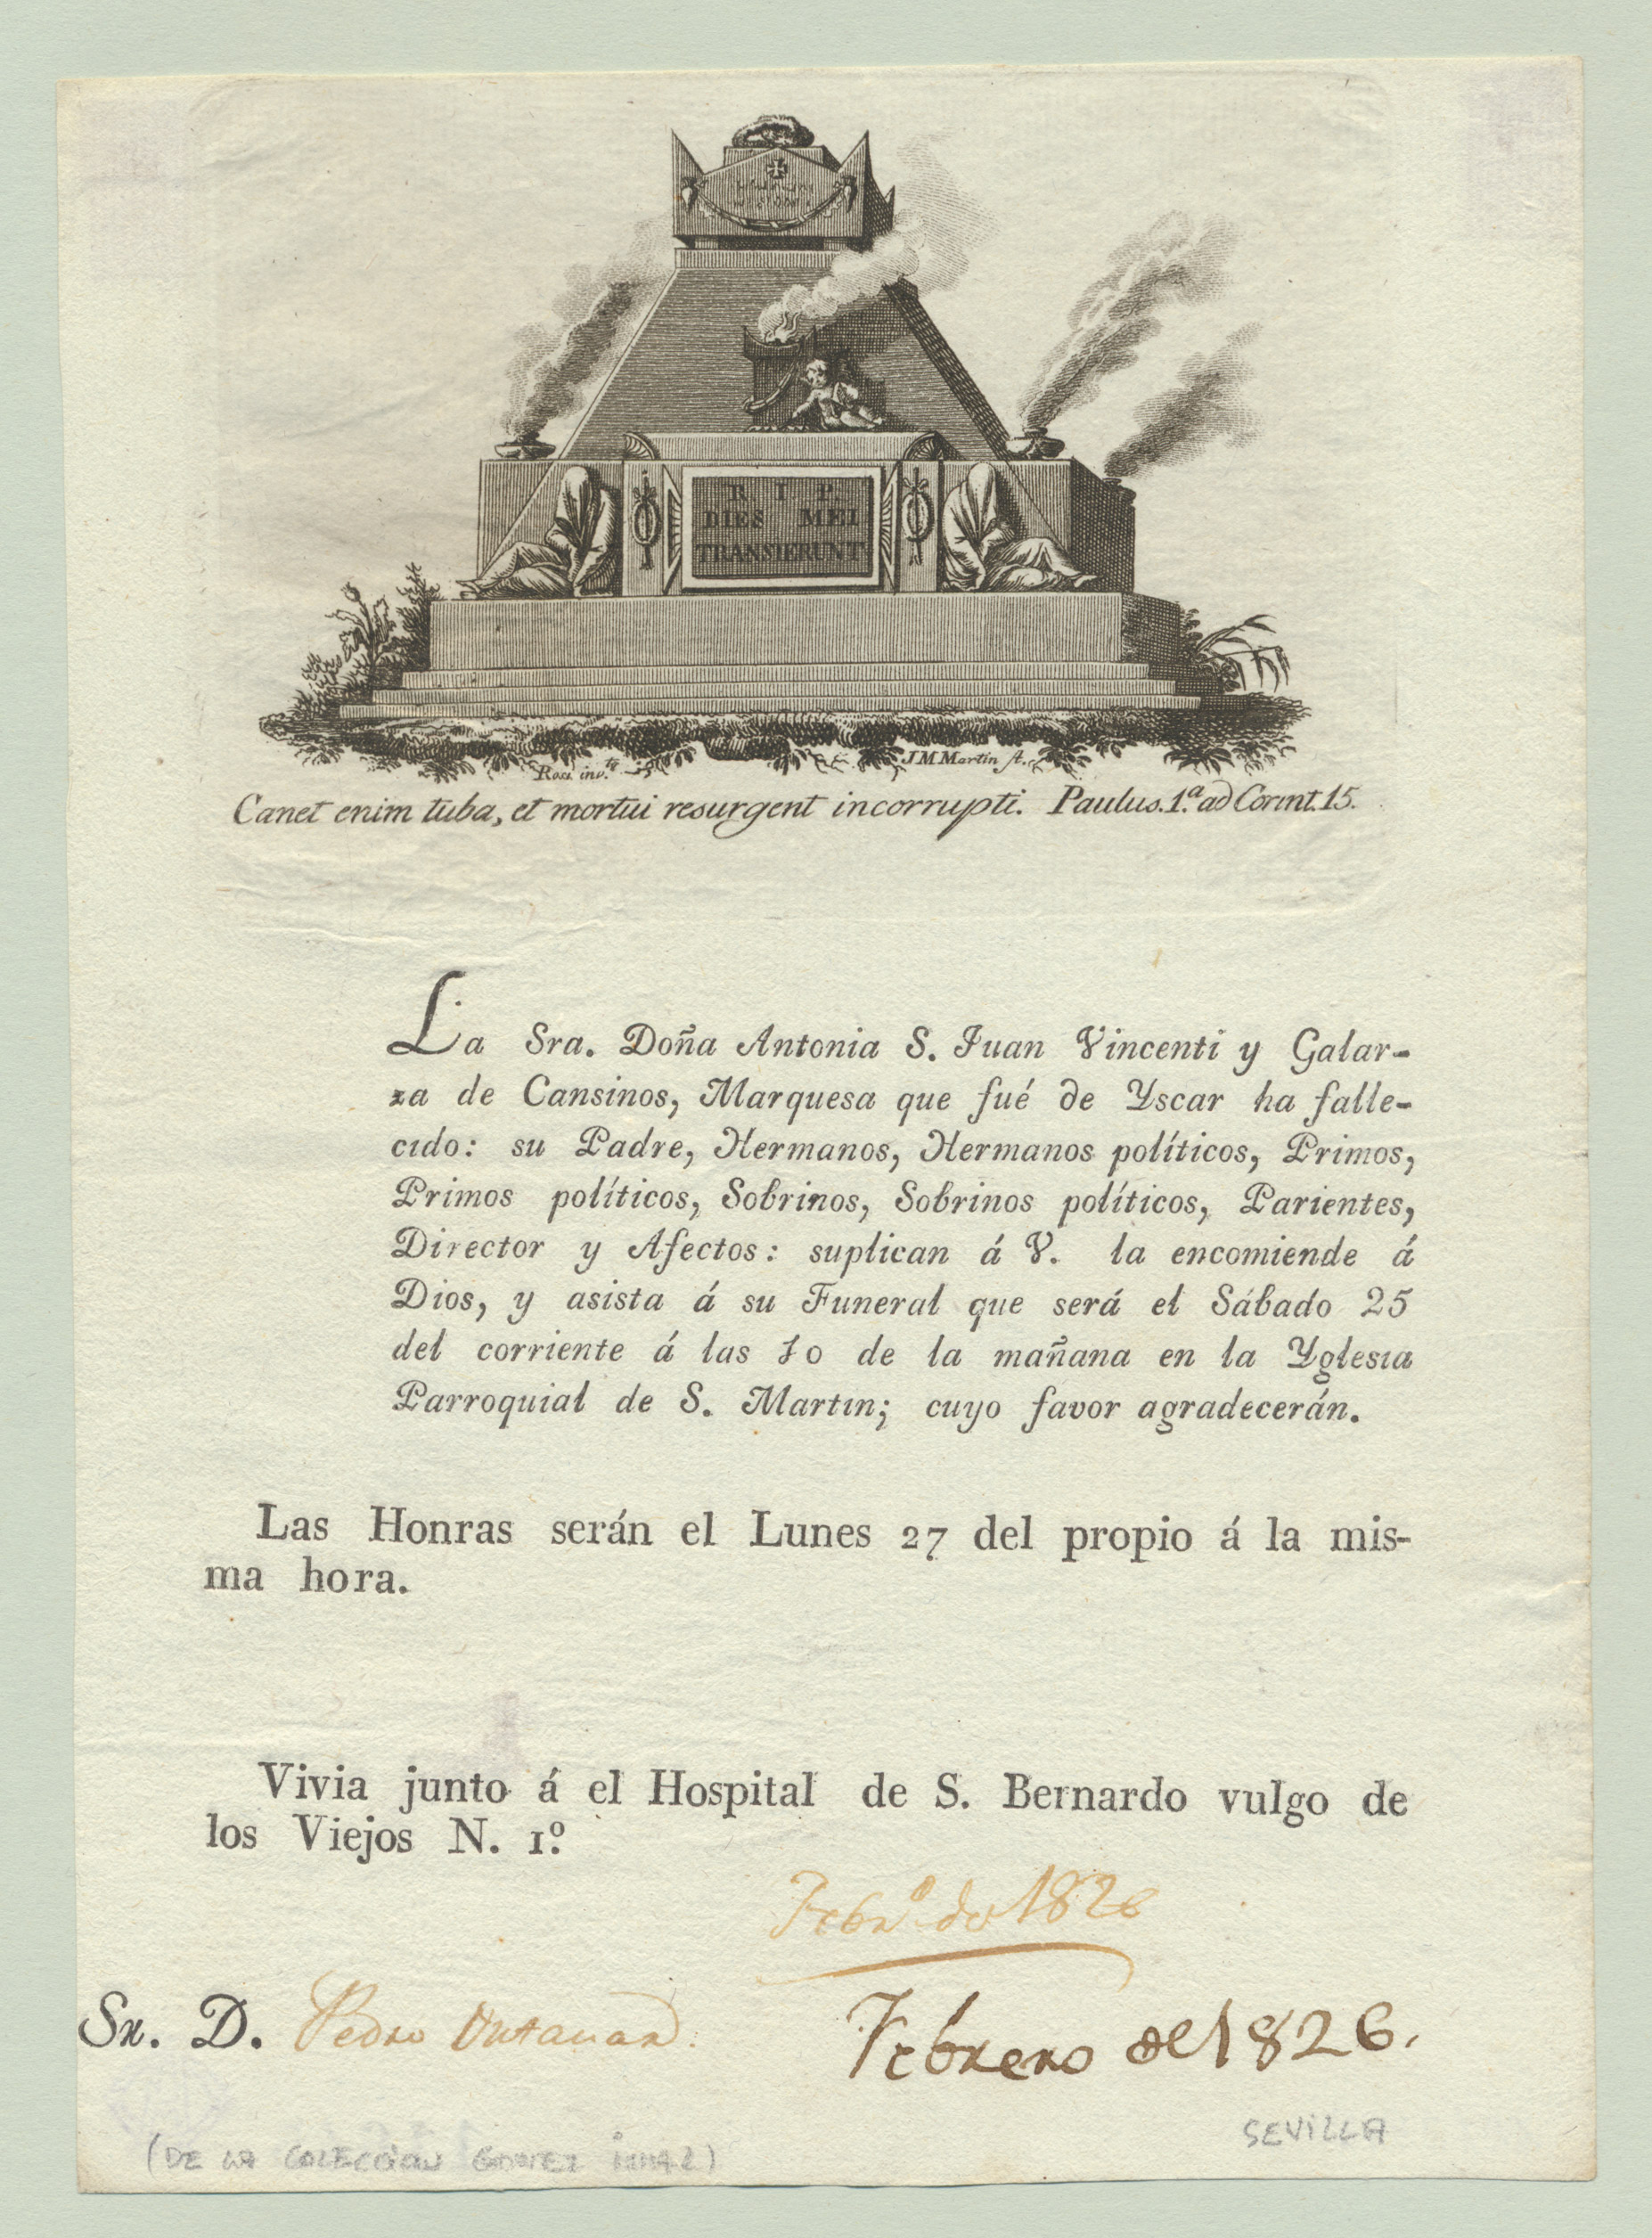 R. I. P.
DIES MEI
TRANSIERUNT
Rosi inv.
J M Martin
Canet enim tuba, et mortui resurgent incorrupti. Paulus. 1.ª ad Corint. 15.
La Sra. Doña Antonia S. Juan Vincenti y Galar-
za de Cansinos, Marquesa que fué de Yscar ha falle-
cido: su Padre, Hermanos, Hermanos políticos, Primos,
Primos políticos, Sobrinos, Sobrinos políticos, Parientes,
Director y Afectos: suplican á V. la encomiende á
Dios, y asista á su Funeral que será el Sábado 25
del corriente á las 10 de la mañana en la Yglesia
Parroquial de S. Martin; cuyo favor agradecerán.
Las Honras serán el Lunes 27 del propio á la mis-
ma hora.
Vivia junto á el Hospital de S. Bernardo vulgo de
los Viejos N. 1.º
Febr.º de 1826
Sr. D. Pedro
Febrero de 1826.
SEVILLA
(DE LA COLECCIÓN GOMEZ IMAZ)